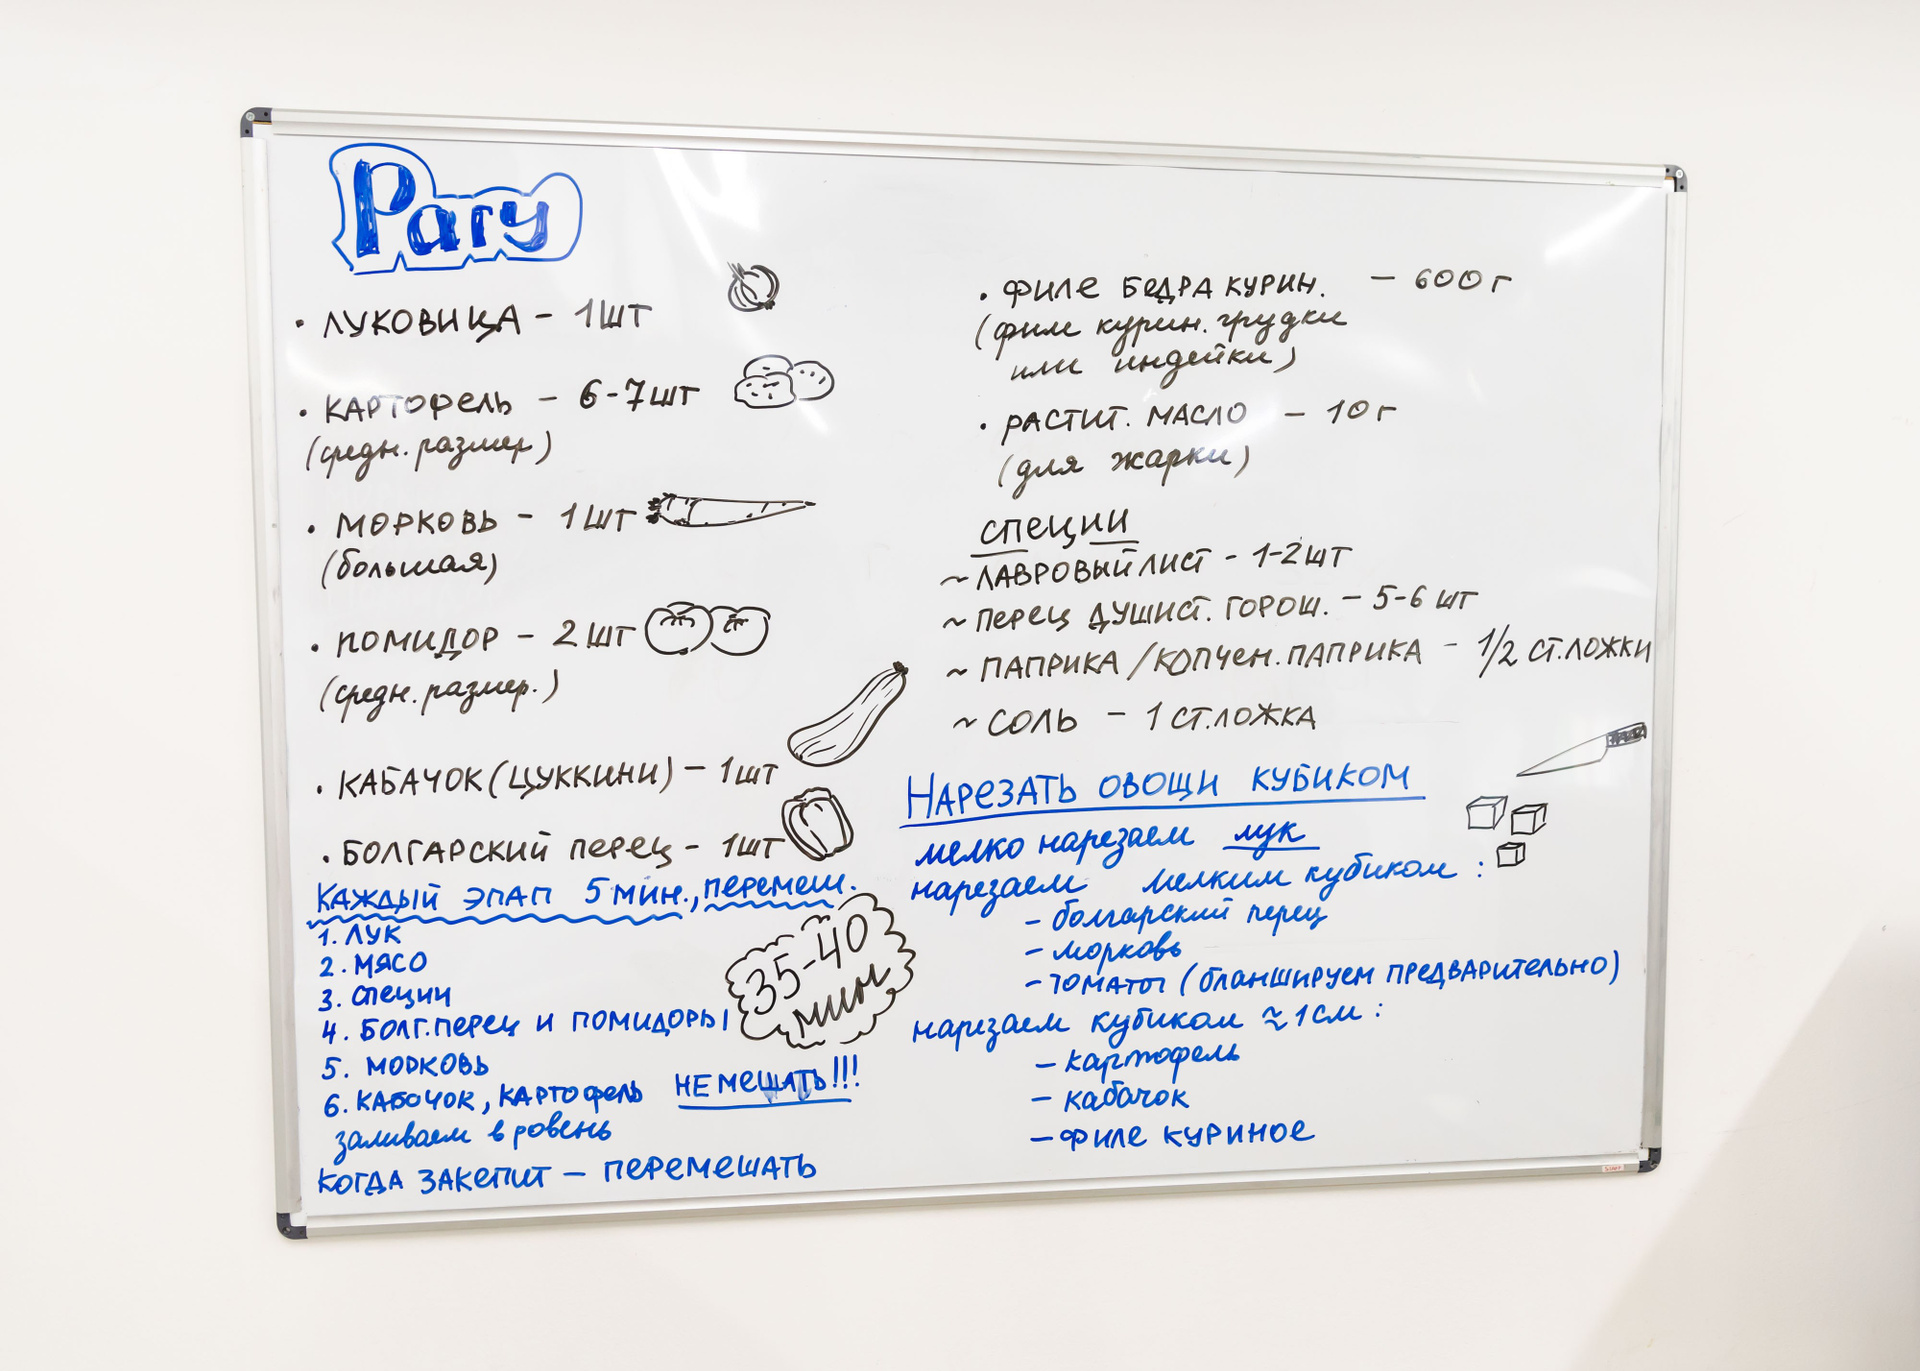 Рагу
• ЛУКОВИЦА – 1 ШТ
• КАРТОФЕЛЬ – 6-7 ШТ
(средн. размер)
• МОРКОВЬ – 1 ШТ
(большая)
• ПОМИДОР – 2 ШТ
(средн. размер.)
• КАБАЧОК (ЦУККИНИ) – 1 ШТ
• БОЛГАРСКИЙ ПЕРЕЦ – 1 ШТ
КАЖДЫЙ ЭПАП 5 МИН., ПЕРЕМЕШ.
1. ЛУК
2. МЯСО
3. СПЕЦИИ
4. БОЛГ. ПЕРЕЦ И ПОМИДОРЫ
5. МОРКОВЬ
6. КАБОЧОК, КАРТОФЕЛЬ НЕ МЕШАТЬ!!!
заливаем в ровень
КОГДА ЗАКЕПИТ – ПЕРЕМЕШАТЬ
35-40
мин
• ФИЛЕ БЕДРА КУРИН. – 600 Г
(филе курин. грудки
или индейки)
• РАСТИТ. МАСЛО – 10 Г
(для жарки)
СПЕЦИИ
~ ЛАВРОВЫЙ ЛИСТ – 1-2 ШТ
~ ПЕРЕЦ ДУШИСТ. ГОРОШ. – 5-6 ШТ
~ ПАПРИКА / КОПЧЕН. ПАПРИКА – 1/2 СТ. ЛОЖКИ
~ СОЛЬ – 1 СТ. ЛОЖКА
НАРЕЗАТЬ ОВОЩИ КУБИКОМ
мелко нарезаем лук
нарезаем мелким кубиком:
– болгарский перец
– морковь
– томаты (бланшируем ПРЕДВАРИТЕЛЬНО)
нарезаем кубиком ≈ 1 см:
– картофель
– кабачок
– ФИЛЕ КУРИНОЕ